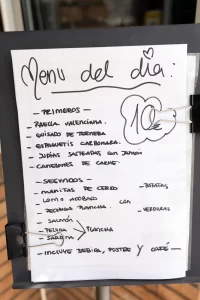 Menu del dia:
- PRIMEROS -
- PAELLA VALENCIANA.
- GUISADO DE TERNERA
- ESPAGUETIS CARBONARA.
- JUDIAS SALTEADAS CON JAMON
- CANELONES DE CARNE.
10€
- SEGUNDOS -
- MANITAS DE CERDO
- LOMO ADOBADO
- PECHUGA PLANCHA
- SALMÓN
- SARDINA
PLANCHA
CON
- PATATAS
- VERDURAS
- INCLUYE BEBIDA, POSTRE Y CAFÉ -